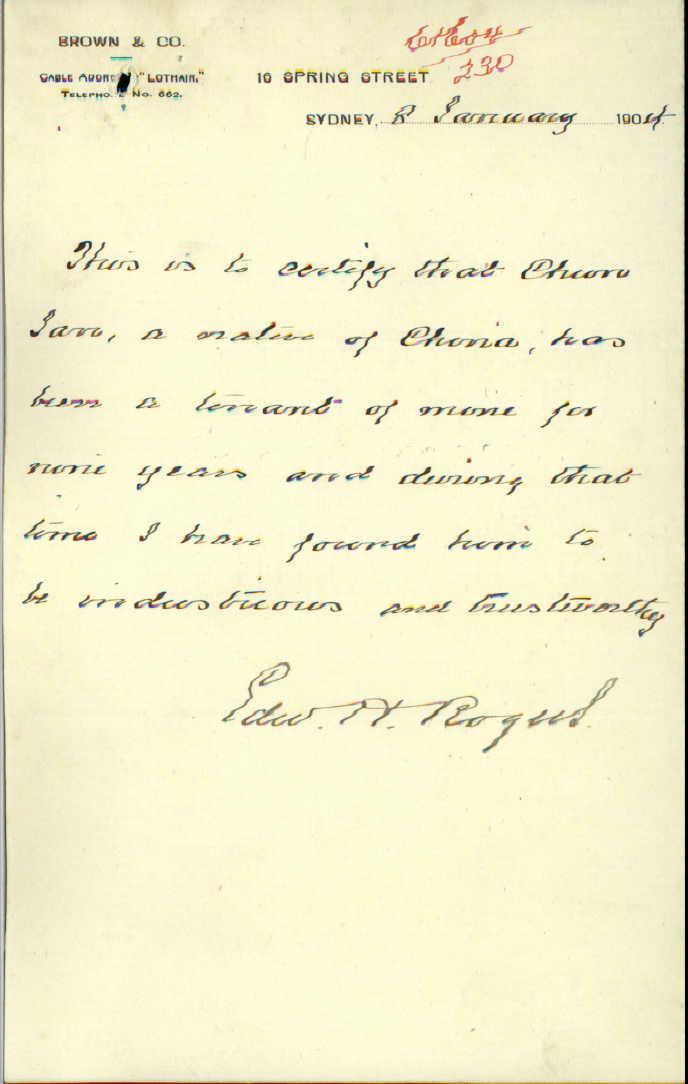 BROWN & CO.
CABLE ADDRE "LOTHAIR,"
TELEPHO E No. 662.
16 SPRING STREET
230
SYDNEY, 8 January 1904
This is to certify that Chun
Jan, a native of China, has
been a tenant of mine for
nine years and during that
time I have found him to
be industrious and trustworthy
Edw. H. Rogers